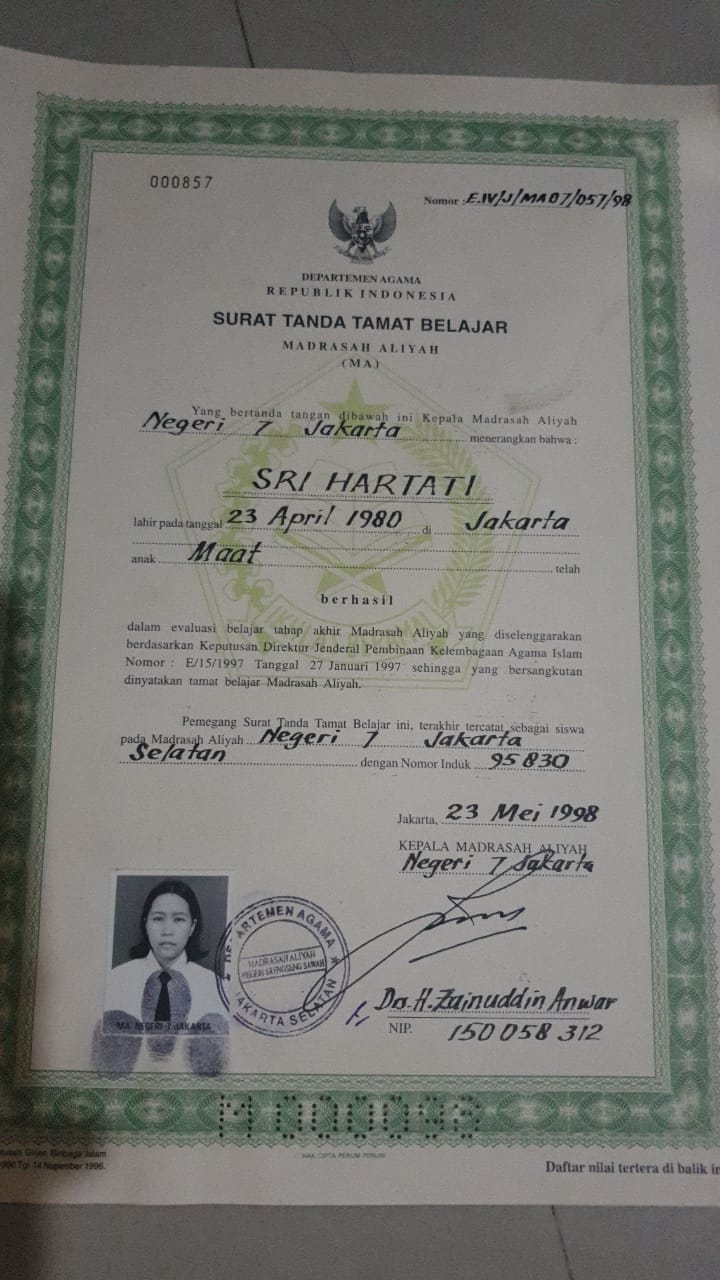 000857
Nomor : E.IV/J/MA07/057/98
DEPARTEMEN AGAMA
REPUBLIK INDONESIA
SURAT TANDA TAMAT BELAJAR
MADRASAH ALIYAH
(MA)
Yang bertanda tangan dibawah ini Kepala Madrasah Aliyah
Negeri 7 Jakarta menerangkan bahwa :
SRI HARTATI
lahir pada tanggal 23 April 1980 di Jakarta
anak Maat telah
berhasil
dalam evaluasi belajar tahap akhir Madrasah Aliyah yang diselenggarakan
berdasarkan Keputusan Direktur Jenderal Pembinaan Kelembagaan Agama Islam
Nomor : E/15/1997 Tanggal 27 Januari 1997 sehingga yang bersangkutan
dinyatakan tamat belajar Madrasah Aliyah.
Pemegang Surat Tanda Tamat Belajar ini, terakhir tercatat sebagai siswa
pada Madrasah Aliyah Negeri 7 Jakarta
Selatan dengan Nomor Induk 95830
Jakarta, 23 Mei 1998
KEPALA MADRASAH ALIYAH
Negeri 7 Jakarta
DEPARTEMEN AGAMA
MADRASAH ALIYAH
NEGERI SRENGSENG SAWAH
JAKARTA SELATAN
MA NEGERI 7 JAKARTA
H. Zainuddin Anwar
NIP. 150 058 312
M 000098
Ditjen Binbaga Islam
Tgl 14 Nopember 1996.
HAK CIPTA PERUM PERURI
Daftar nilai tertera di balik